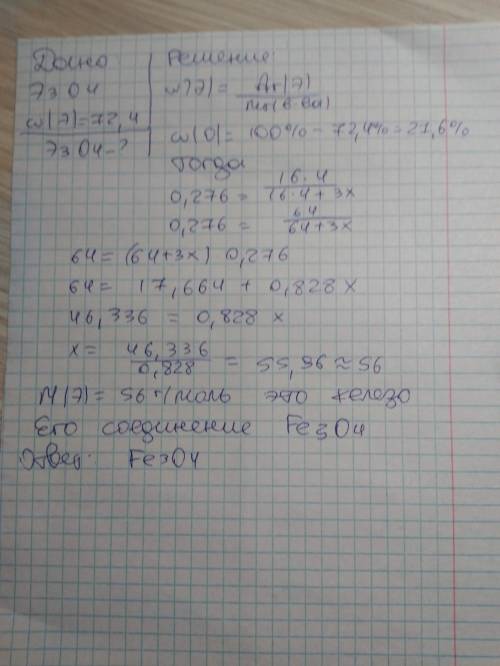 Дано
Э3O4
w(Э)=72,4
Э3O4-?
Решение
w(Э)= Ar(Э)/Mr(в-ва)
w(O)= 100% - 72,4% = 27,6%
тогда
0,276 = 16·4/16·4+3x
0,276 = 64/64+3x
64= (64+3x) 0,276
64= 17,664 + 0,828 x
46,336 = 0,828 x
x= 46,336/0,828 = 55,96 ≈ 56
M(Э)= 56 г/моль это железо
Его соединение Fe3O4
Ответ: Fe3O4